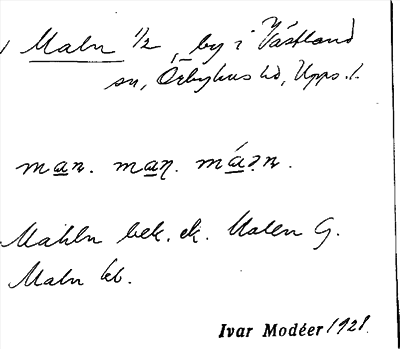 Maln ½, by i Västland
sn, Örbyhus hd, Upps. l.
man. maṇ. máən.
Mahln bek. ek. Malen G.
Maln kb.
Ivar Modéer 1921